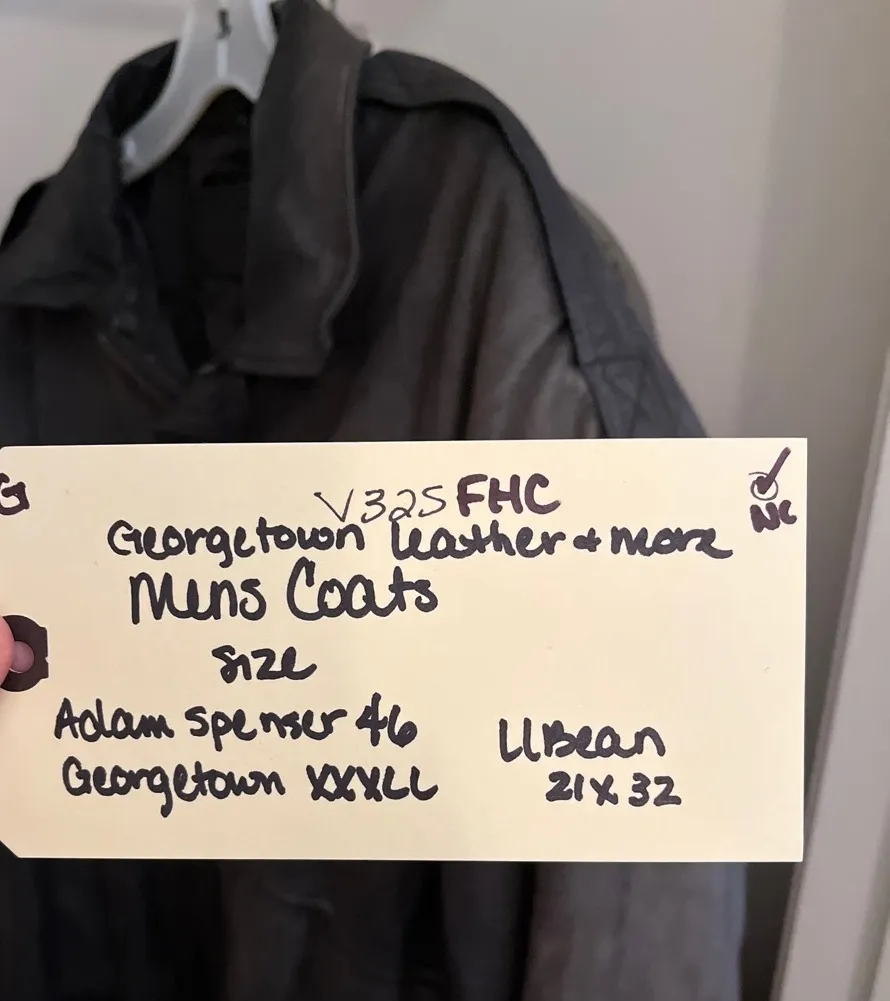 G
V325 FHC
NC
Georgetown leather & more
Mens Coats
Size
Adam Spenser 46
Georgetown XXXLL
LLBean
21 x 32